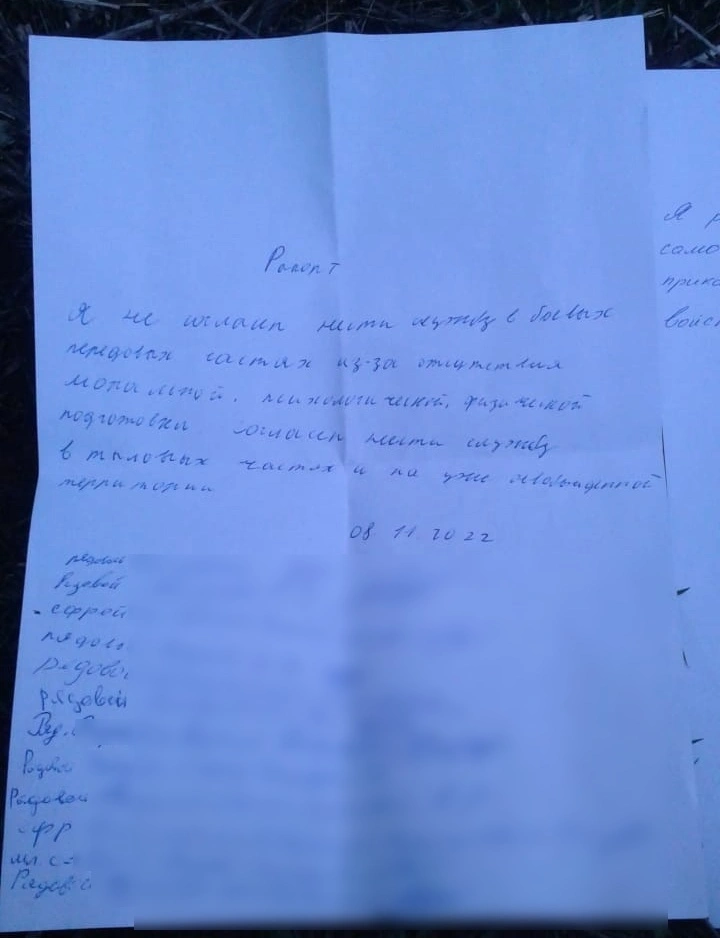 Рапорт
Я не согласен нести службу в боевых
передовых частях из-за отсутствия
моральной, психологической, физической
подготовки согласен нести службу
в тыловых частях и на уже освобожденной
территории
08 11 2022
рядовой
Рядовой
ефрей
рядов
рядово
рядовой
Ряд.
Рядово
Рядовой
ефр
мл с-
Рядовой
Я р
само
прика
войс